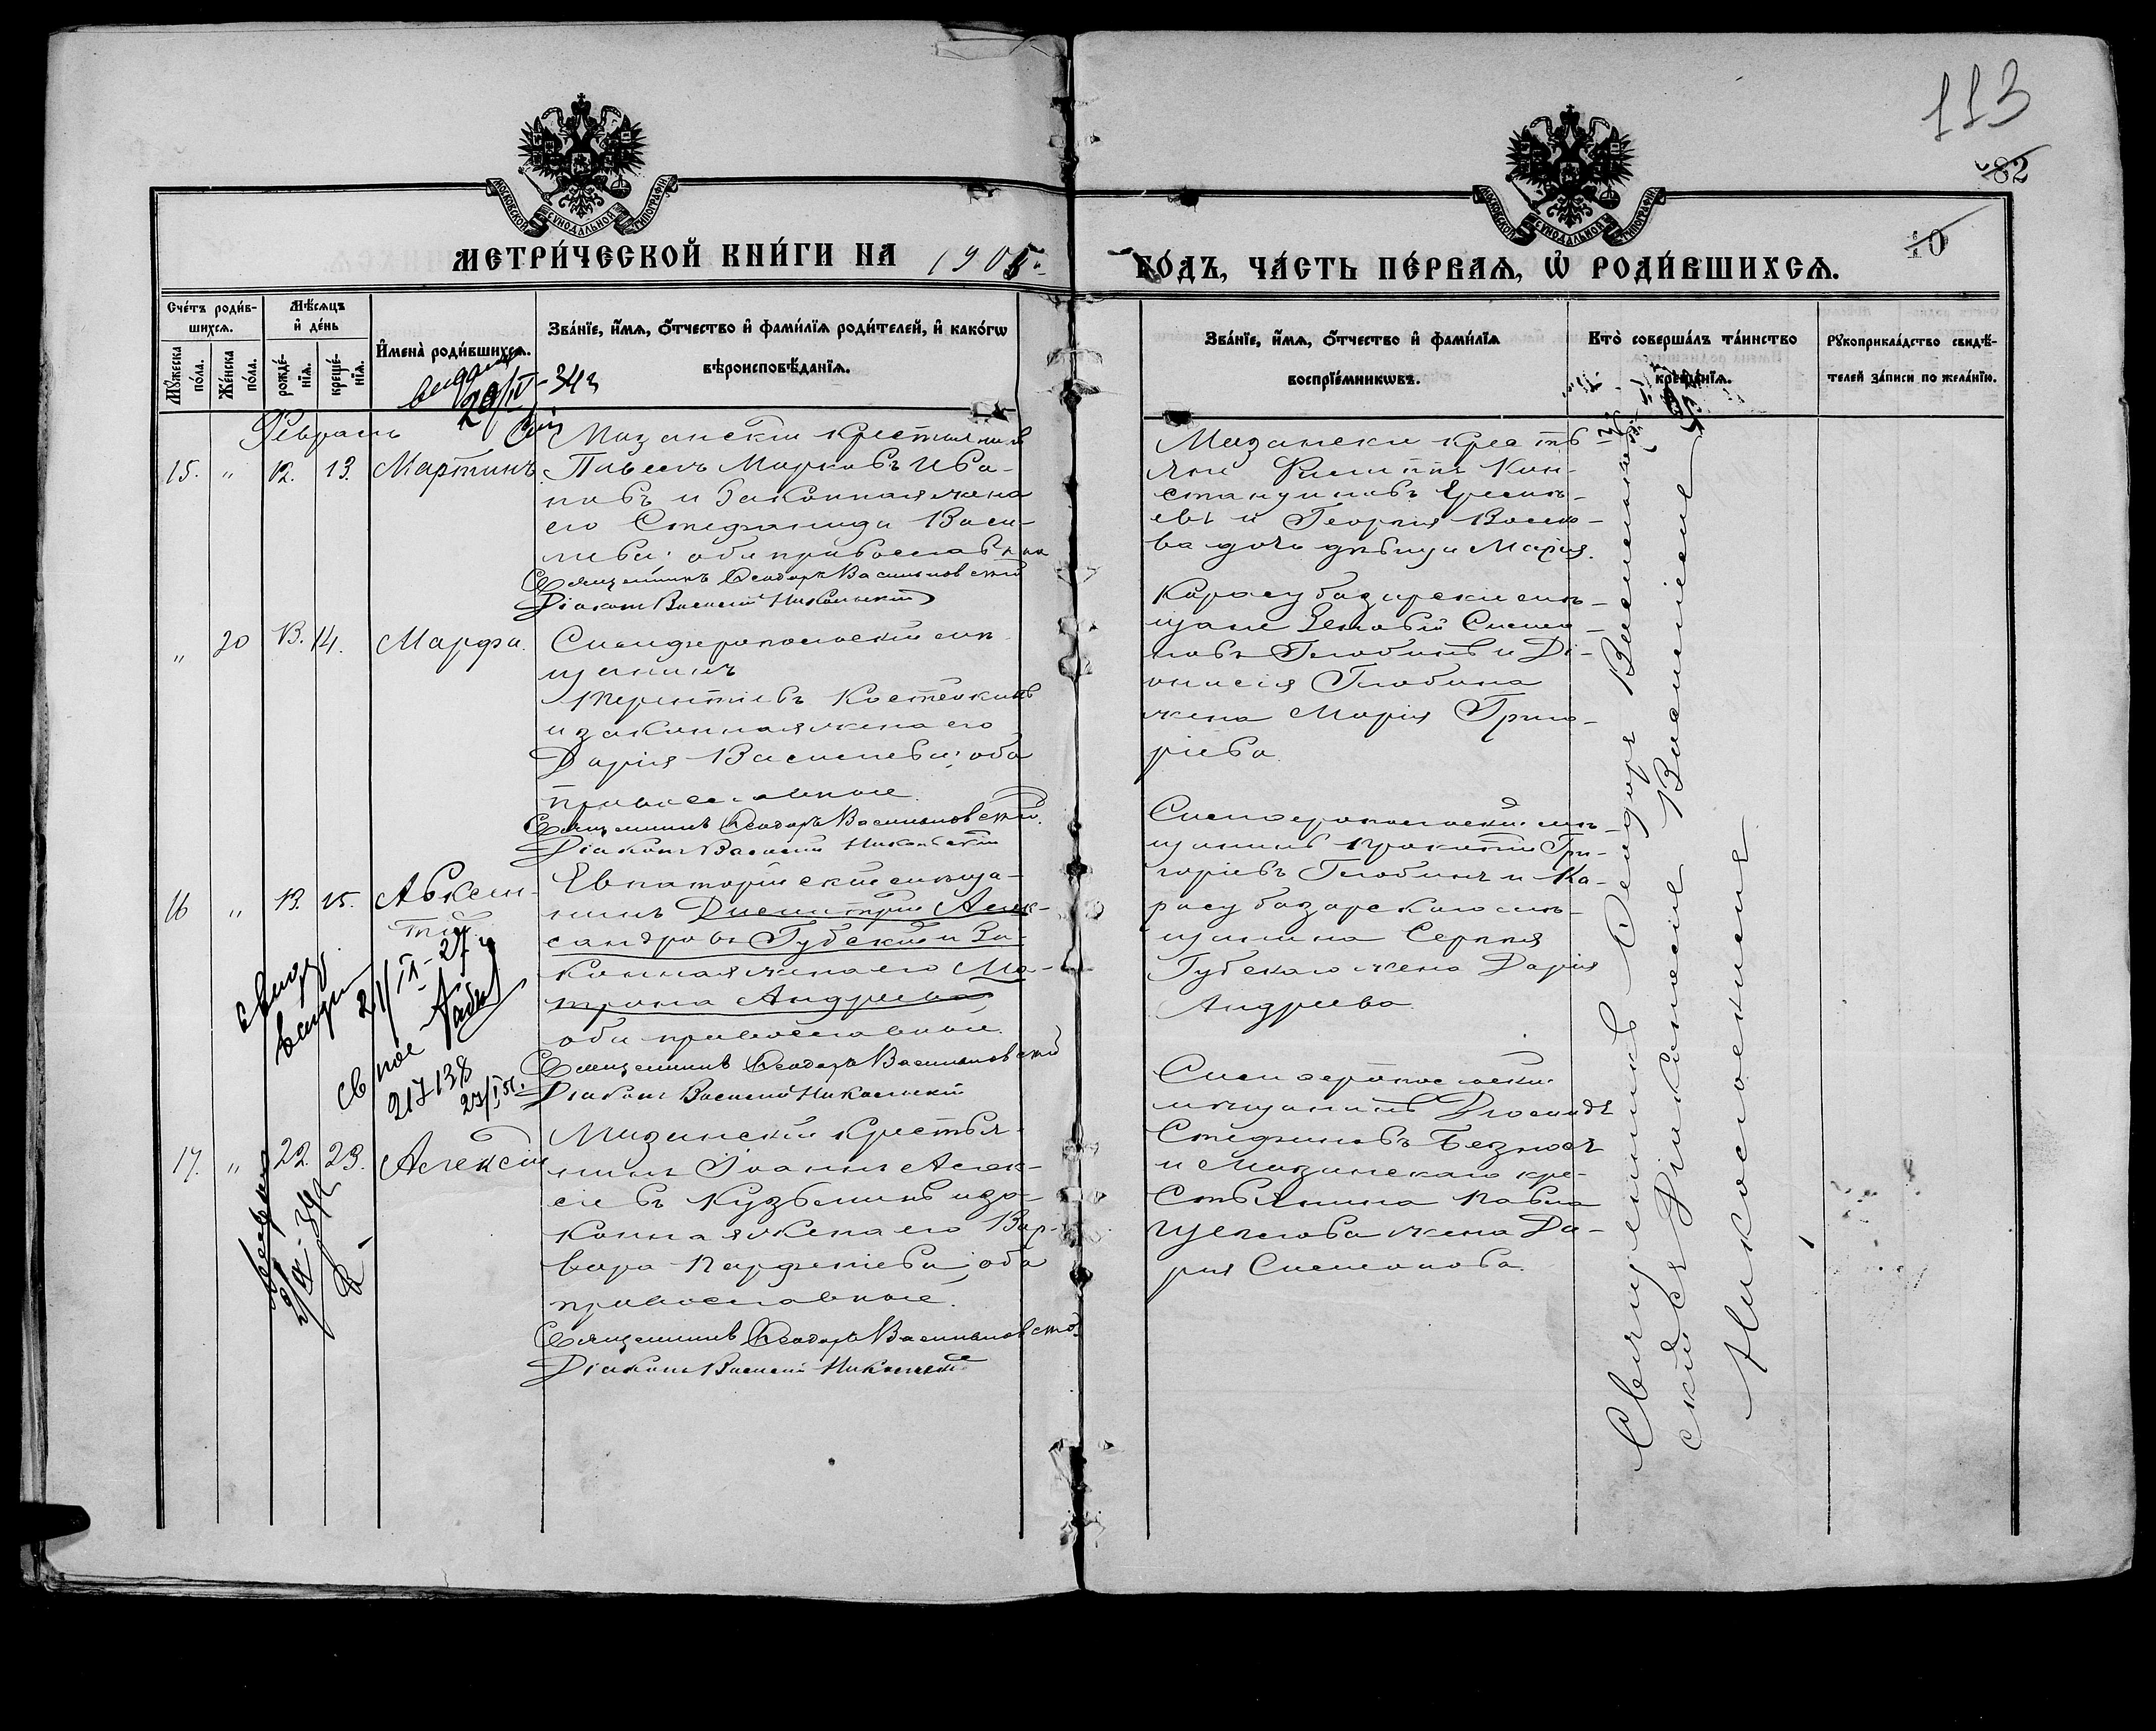 113
82
10
МОСКОВСКОЙ СѴНОДАЛЬНОЙ ТИПОГРАФІИ
МОСКОВСКОЙ СѴНОДАЛЬНОЙ ТИПОГРАФІИ
МЕТРИ́ЧЕСКОЙ КНИ́ГИ НА 1905 г.
ГО́ДЪ, ЧА́СТЬ ПЕ́РВАѦ, Ѡ҆ РОДИ́ВШИХСѦ.
Сче́тъ роди́в-
шихсѧ.
Мꙋ́жеска по́ла.
Же́нска по́ла.
Мѣ́сѧцъ
и҆ де́нь
рожде́-
нїѧ.
креще́-
нїѧ.
И҆мена̀ роди́вшихсѧ.
Зва́нїе, и҆́мѧ, ѻ҆́тчество и҆ фами́лїѧ роди́телей, и҆ како́гѡ
вѣроисповѣ́данїѧ.
Зва́нїе, и҆́мѧ, ѻ҆́тчество и҆ фами́лїѧ
воспрїе́мникѡвъ.
Кто̀ соверша́лъ та́инство
креще́нїѧ.
Рꙋкоприкла́дство свидѣ́-
телей за́писи по жела́нїю.
20/IV - 34 г
Февраль
15. " 12. 13. Мартинъ
Мазанскій крестьянинъ
Павелъ Марковъ Ива-
новъ и законная жена
его Стефанида Васи-
льева; оба православные
Священникъ Ѳеодоръ Васильковскій
Діаконъ Василій Никольскій
Мазанскіе кресть
яне Филиппъ Кон-
стантиновъ Ереме-
евъ и Георгія Волко-
ва дочь дѣвица Марія.
" 20 13. 14. Марѳа.
Симферопольскій мѣ
щанинъ
Терентіевъ Костёкинъ
и законная жена его
Дарія Васильева; оба
православные.
Священникъ Ѳеодоръ Васильковскій.
Діаконъ Василій Никольскій
Карасубазарскіе мѣ-
щане Зеновій Симео-
новъ Глобинъ и Ді-
онисія Глобина
жена Марія Григо-
ріева.
16 " 13. 15. Авксен-
тій.
Евпаторійскій мѣща-
нинъ Димитрій Алек-
сандровъ Губскій и за-
конная жена его Ма-
трона Андреева,
оба православные.
Священникъ Ѳеодоръ Васильковскій
Діаконъ Василій Никольскій
Симферопольскій мѣ-
щанинъ Прокопій Гри-
горіевъ Глобинъ и Ка-
расубазарскаго мѣ-
щанина Сергія
Губскаго жена Дарія
Андреева.
21/IX - 27 г
217138
17. " 22. 23. Алексій
Мазанскій крестья-
нинъ Іоаннъ Алек-
сіевъ Кузьминъ и за-
конная жена его Вар-
вара Парфеніева; оба
православные.
Священникъ Ѳеодоръ Васильковскій.
Діаконъ Василій Никольскій
Симферопольскій
мѣщанинъ Діомидъ
Стефановъ Безносъ
и Мазанскаго кре-
стьянина Павла
Щеглова жена Да-
рія Симеонова.
Священникъ Ѳеодоръ Васильков-
скій съ Діакономъ Василіемъ
Никольскимъ